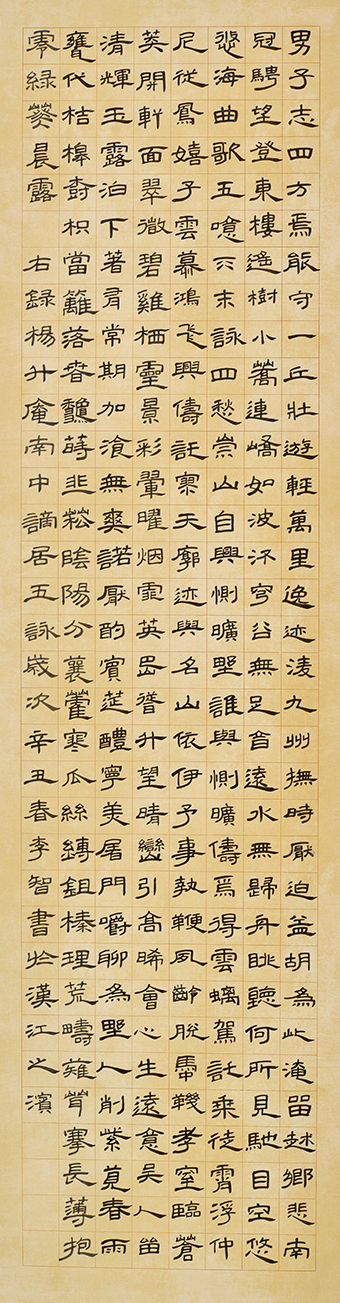 男子志四方焉能守一丘壯遊輕萬里逸迹淩九州撫時厭迫益胡為此淹留越鄉悲南
冠騁望登東樓遙樹小蒿連嶠如波汓穹谷無足音遠水無歸舟眺聽何所見馳目空悠
悠海曲歌五噫天末詠四愁崇山自興惻曠野誰與惻曠儔焉得雲螭駕託乘徒霄浮仲
尼從鳳嬉子雲慕鴻飛興儔託寥天廓迹與名山依伊予事執鞭夙齡脫馽鞿孝室臨蒼
英開軒面翠微碧雞栖靈景彩翬曜烟霏英岊朁升望晴巒引高晞會心生遠意吴人留
清輝玉露泊下著君常期加飡無爽諾厭酌賓筵醴寧羨屠門嚼聊為野人削紫莧春雨
甕代桔槔樹枳當籬落眷蒔韭菘陰陽分襄藿寒瓜絲縛鉏榛理荒疇薙茸搴長薄抱
零綠葵晨露 右錄楊升庵南中謫居五詠歲次辛丑春李智書於漢江之濱